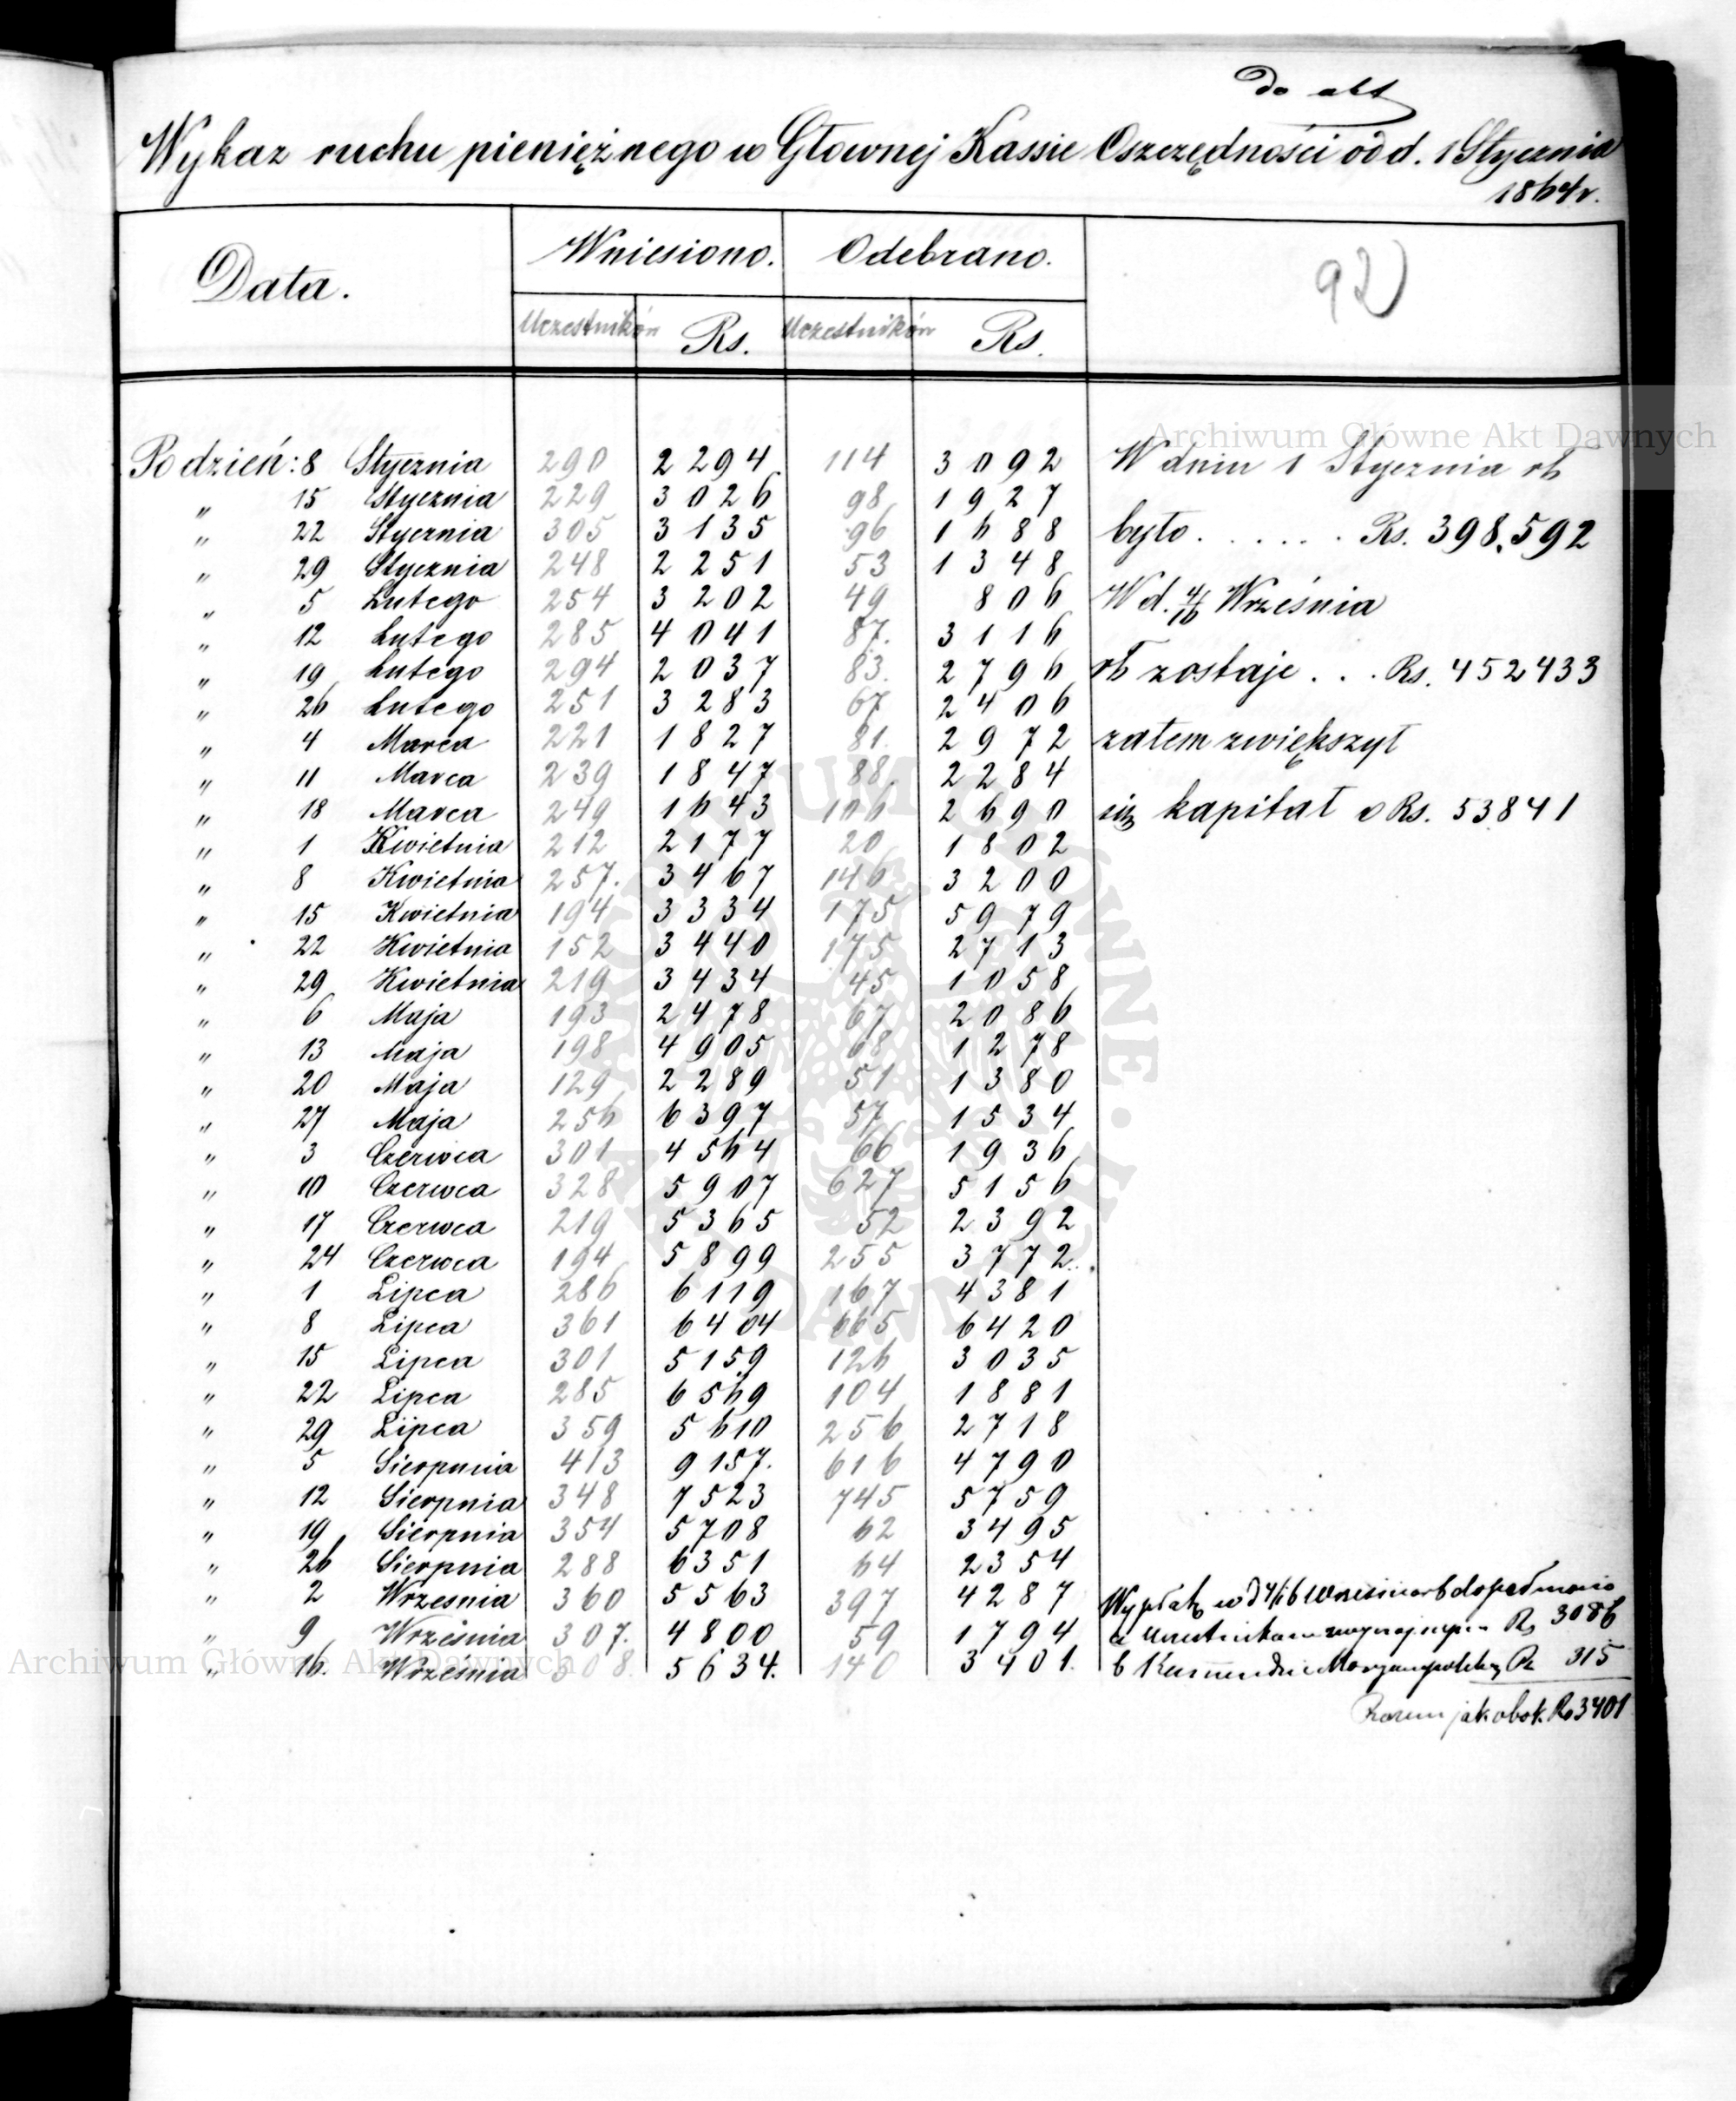 do akt
Wykaz ruchu pieniężnego w Głownej Kassie Oszczędności od d. 1 Stycznia
1864 r.
Data. Wniesiono. Odebrano. 92
Uczestników Rs. Uczestników Rs.
Po dzień: 8 Stycznia 290 2294 114 3092 W dniu 1 Stycznia rb
" 15 Stycznia 229 3026 98 1927
" 22 Stycznia 305 3135 96 1688 było . . . . . . Rs. 398,592
" 29 Stycznia 248 2251 53 1348
" 5 Lutego 254 3202 49 806 W d. 4/16 Września
" 12 Lutego 285 4041 87. 3116
" 19 Lutego 294 2037 83. 2796 rb zostaje . . . Rs. 452433
" 26 Lutego 251 3283 67 2406
" 4 Marca 221 1827 81. 2972 zatem zwiększył
" 11 Marca 239 1847 88. 2284
" 18 Marca 249 1643 106 2690 się kapitał o Rs. 53841
" 1 Kwietnia 212 2177 20 1802
" 8 Kwietnia 257. 3467 146 3200
" 15 Kwietnia 194 3334 175 5979
" 22 Kwietnia 152 3440 175 2713
" 29 Kwietnia 219 3434 45 1058
" 6 Maja 193 2478 67 2086
" 13 Maja 198 4905 68 1278
" 20 Maja 129 2289 51 1380
" 27 Maja 256 6397 57 1534
" 3 Czerwca 301 4564 66 1936
" 10 Czerwca 328 5907 627 5156
" 17 Czerwca 219 5365 52 2392
" 24 Czerwca 194 5899 255 3772
" 1 Lipca 286 6119 167 4381
" 8 Lipca 361 6404 665 6420
" 15 Lipca 301 5159 126 3035
" 22 Lipca 285 6569 104 1881
" 29 Lipca 359 5610 256 2718
" 5 Sierpnia 413 9157. 616 4790
" 12 Sierpnia 348 7523 745 5759
" 19 Sierpnia 354 5708 62 3495
" 26 Sierpnia 288 6351 64 2354
" 2 Wrzesnia 360 5563 397 4287 w d 4/16
" 9 Wrzesnia 307. 4800 59 1794 a Rs 3086
" 16. Wrzesnia 308. 5634. 140 3401. b Rs 315
Razem jak obok Rs 3401
Archiwum Główne Akt Dawnych
Archiwum Główne Akt Dawnych